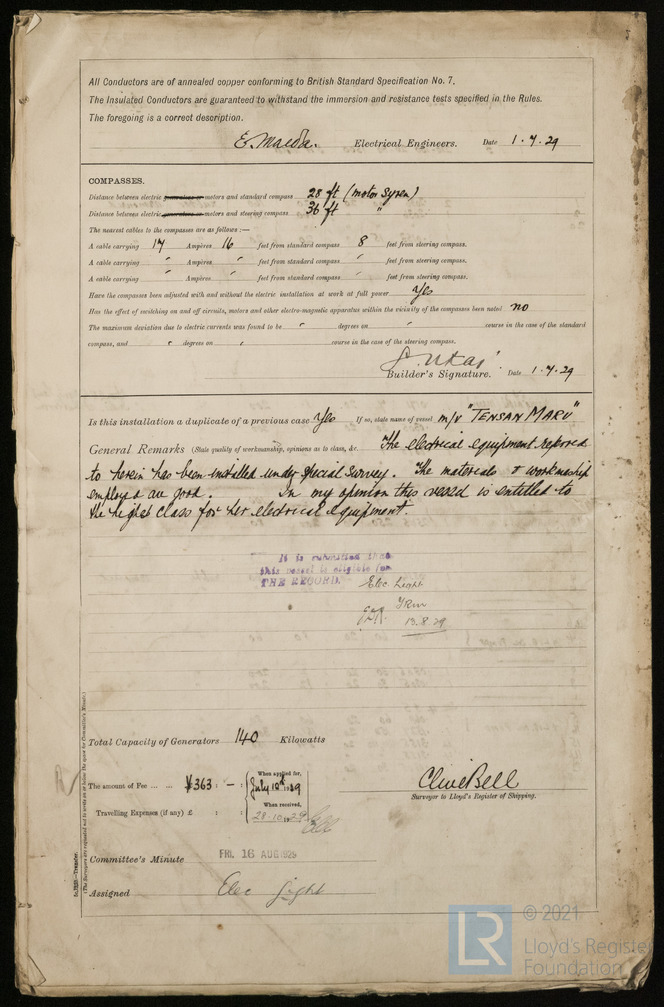 All Conductors are of annealed copper conforming to British Standard Specification No. 7.
The Insulated Conductors are guaranteed to withstand the immersion and resistance tests specified in the Rules.
The foregoing is a correct description.
E. Maeda. Electrical Engineers. Date 1.7.29
COMPASSES.
Distance between electric generators or motors and standard compass 28 ft (motor syren)
Distance between electric generators or motors and steering compass 36 ft "
The nearest cables to the compasses are as follows:—
A cable carrying 17 Ampères 16 feet from standard compass 8 feet from steering compass.
A cable carrying " Ampères " feet from standard compass " feet from steering compass.
A cable carrying " Ampères " feet from standard compass " feet from steering compass.
Have the compasses been adjusted with and without the electric installation at work at full power Yes
Has the effect of switching on and off circuits, motors and other electro-magnetic apparatus within the vicinity of the compasses been noted no
The maximum deviation due to electric currents was found to be " degrees on " course in the case of the standard
compass, and " degrees on " course in the case of the steering compass.
Builder's Signature. Date 1.7.29
Is this installation a duplicate of a previous case Yes If so, state name of vessel m/v "TENSAN MARU"
General Remarks (State quality of workmanship, opinions as to class, &c. The electrical equipment referred
to herein has been installed under special survey. The materials & workmanship
employed are good. In my opinion this vessel is entitled to
the highest class for her electrical equipment.
It is submitted that
this vessel is eligible for
THE RECORD. Elec. Light
13.8.29
Total Capacity of Generators 140 Kilowatts
The amount of Fee ... ... ¥363 : — :
When applied for,
July 10th 1929
Travelling Expenses (if any) £ : :
When received,
28.10.1929
Clive Bell
Surveyor to Lloyd's Register of Shipping.
Committee's Minute FRI. 16 AUG 1929
Assigned Elec Light
(The Surveyors are requested not to write on or below the space for Committee's Minute.)
© 2021
LR
Lloyd's Register
Foundation